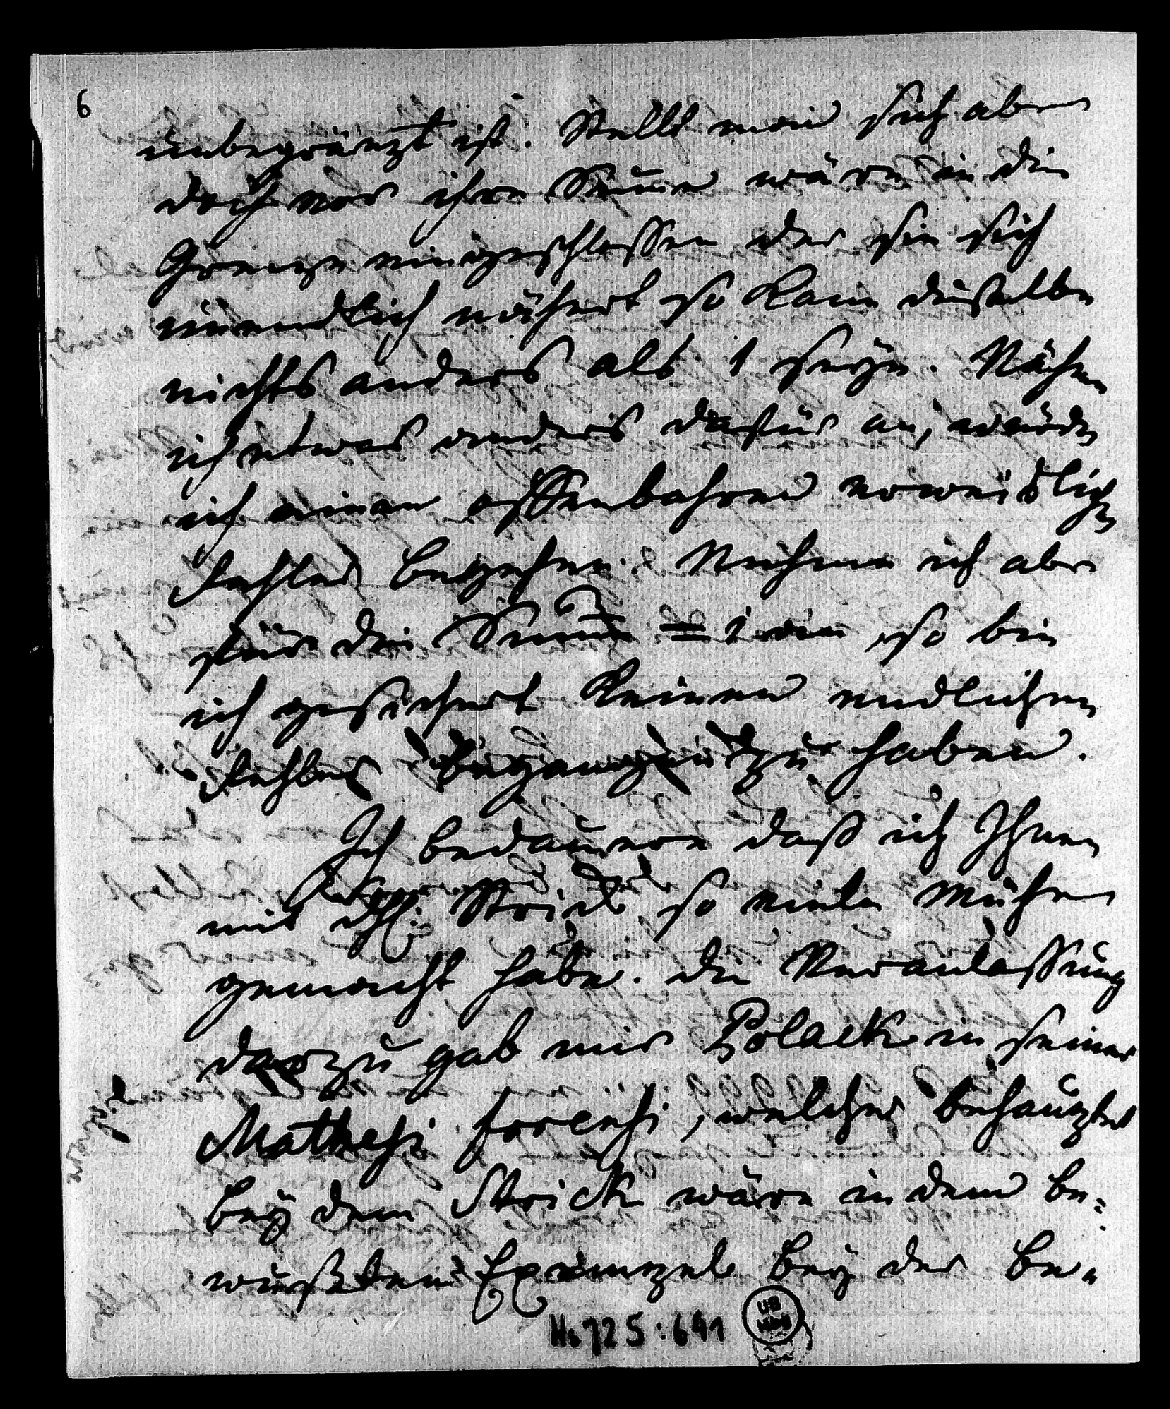 6
unbegränzt ist. Stellt man sich aber
doch vor ihre Summe wäre in die
Grenze eingeschlossen der sie sich
unendlich nähert so kann dieselbe
nichts anders als 1 seyn. Nähm
ich etwas anders dafür an, würde
ich einen offenbahren erweislich
Fehler begehen. Nehme ich aber
für die Summe = 1 an, so bin
ich gesichert keinen endlichen
Fehler begangen zu haben.
Ich bedauere daß ich Ihnen
mit Strick so viele Mühe
gemacht habe. die Veranlassung
darzu gab mir Polack in seiner
Mathesi forensi, welcher behauptet
bey dem Strick wäre in dem be-
wußten Exempel bey der Be-
Hs 725:691
UB